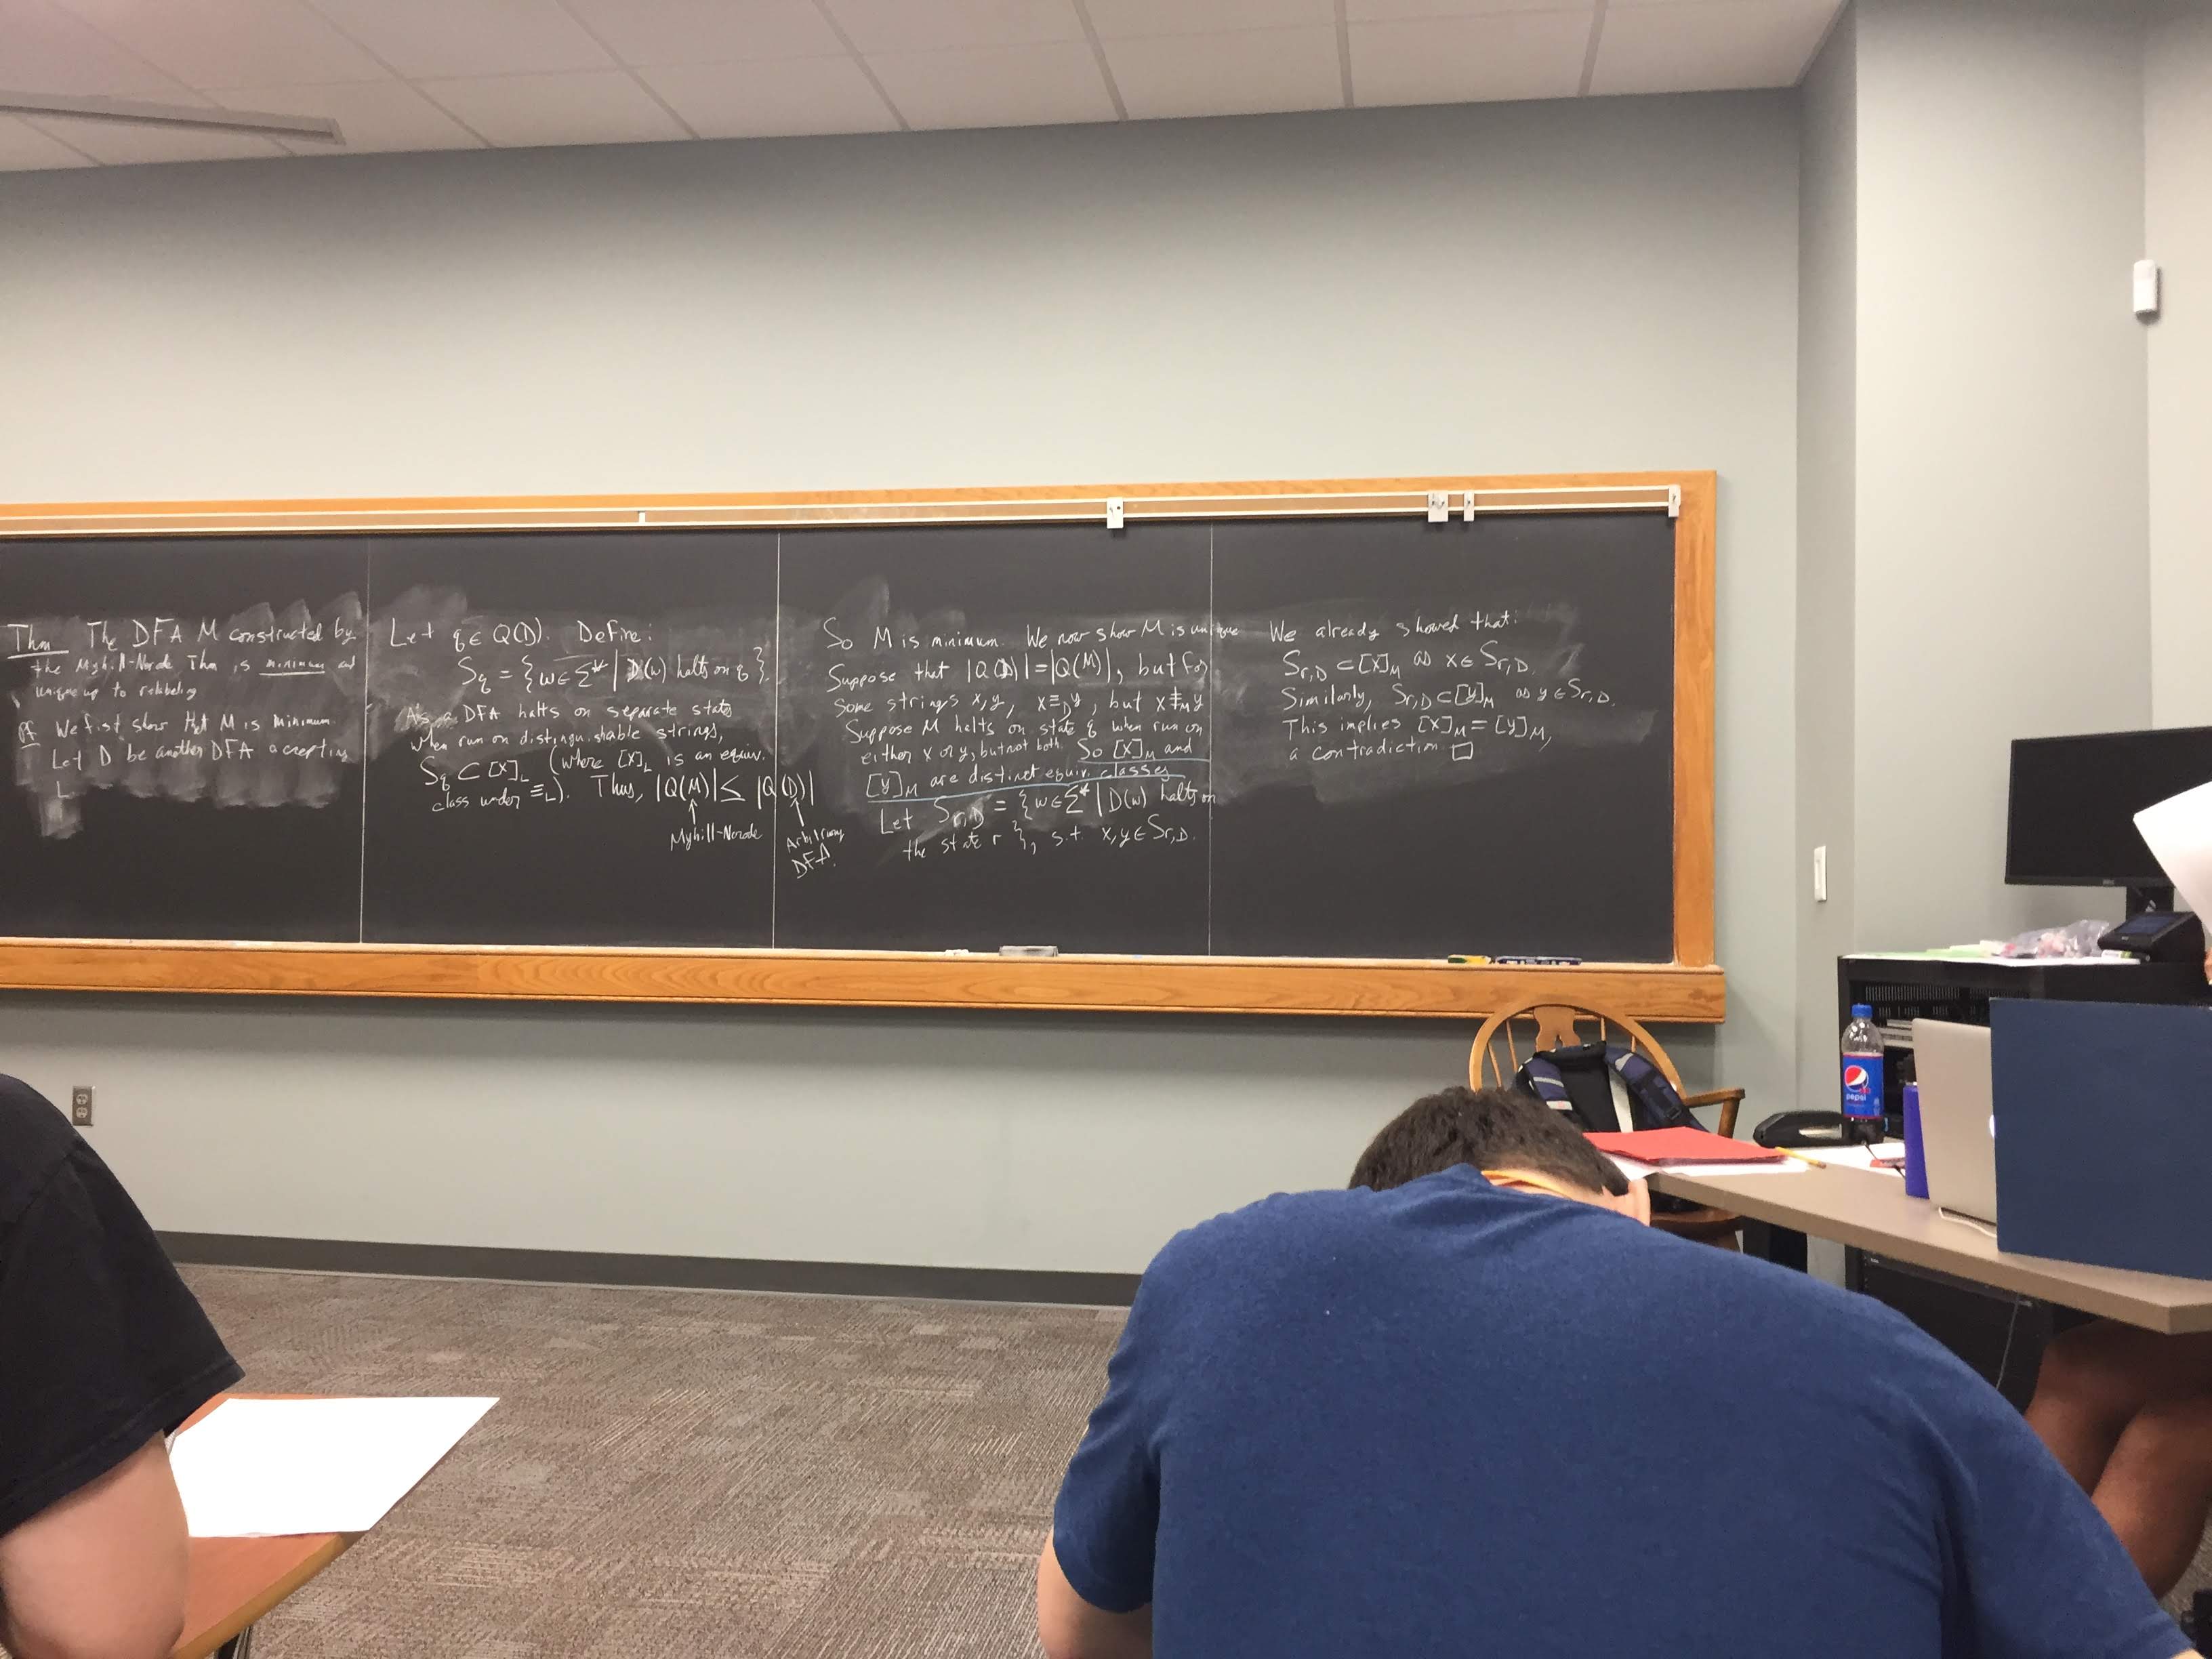 Thm The DFA M constructed by
the Myhill-Nerode Thm is minimum and
unique up to relabeling
Pf We first show that M is minimum.
Let D be another DFA accepting
L.
Let q ∈ Q(D). Define:
S_q = {w ∈ Σ* | D(w) halts on q}.
As a DFA halts on separate states
when run on distinguishable strings,
S_q ⊂ [x]_L (where [x]_L is an equiv.
class under ≡_L). Thus, |Q(M)| ≤ |Q(D)|
Myhill-Nerode
Arbitrary
DFA.
So M is minimum. We now show M is unique
Suppose that |Q(D)| = |Q(M)|, but for
some strings x, y, x ≡_D y, but x ≢_M y
Suppose M halts on state q when run on
either x or y, but not both. So [x]_M and
[y]_M are distinct equiv. classes
Let S_r,D = {w ∈ Σ* | D(w) halts on
the state r}, s.t. x, y ∈ S_r,D.
We already showed that:
S_r,D ⊂ [x]_M as x ∈ S_r,D.
Similarly, S_r,D ⊂ [y]_M as y ∈ S_r,D.
This implies [x]_M = [y]_M,
a contradiction. □
pepsi